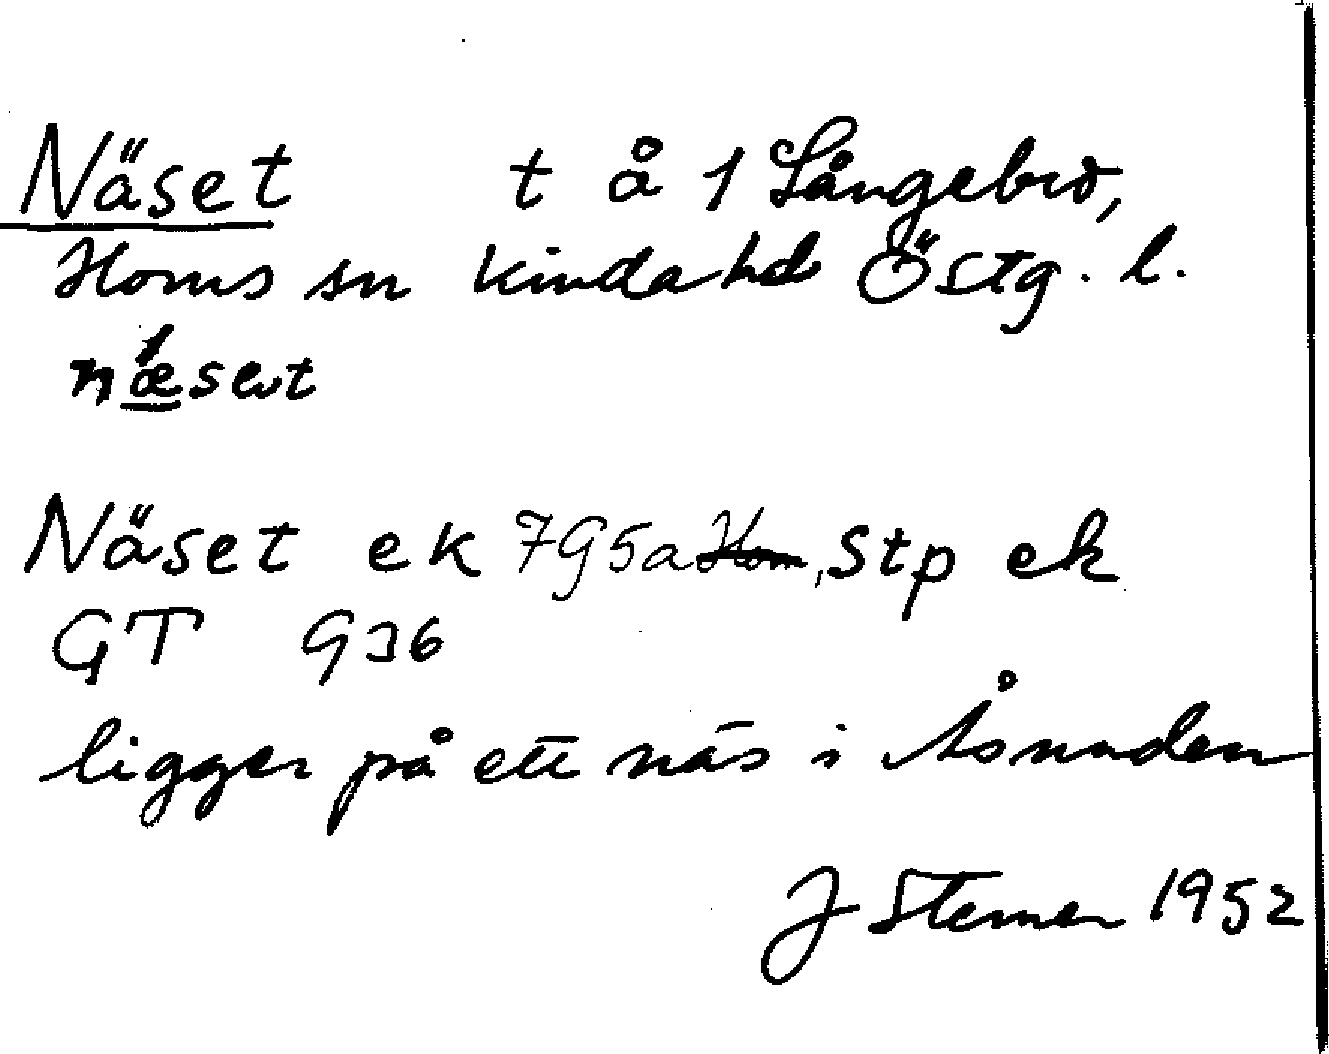 Näset t å 1 Långebro,
Horns sn Kinda hd Östg. l.
næ´set
Näset ek 7G5a Horn, Stp ek
GT 936
ligger på ett näs i Åsunden
J Sterner 1952